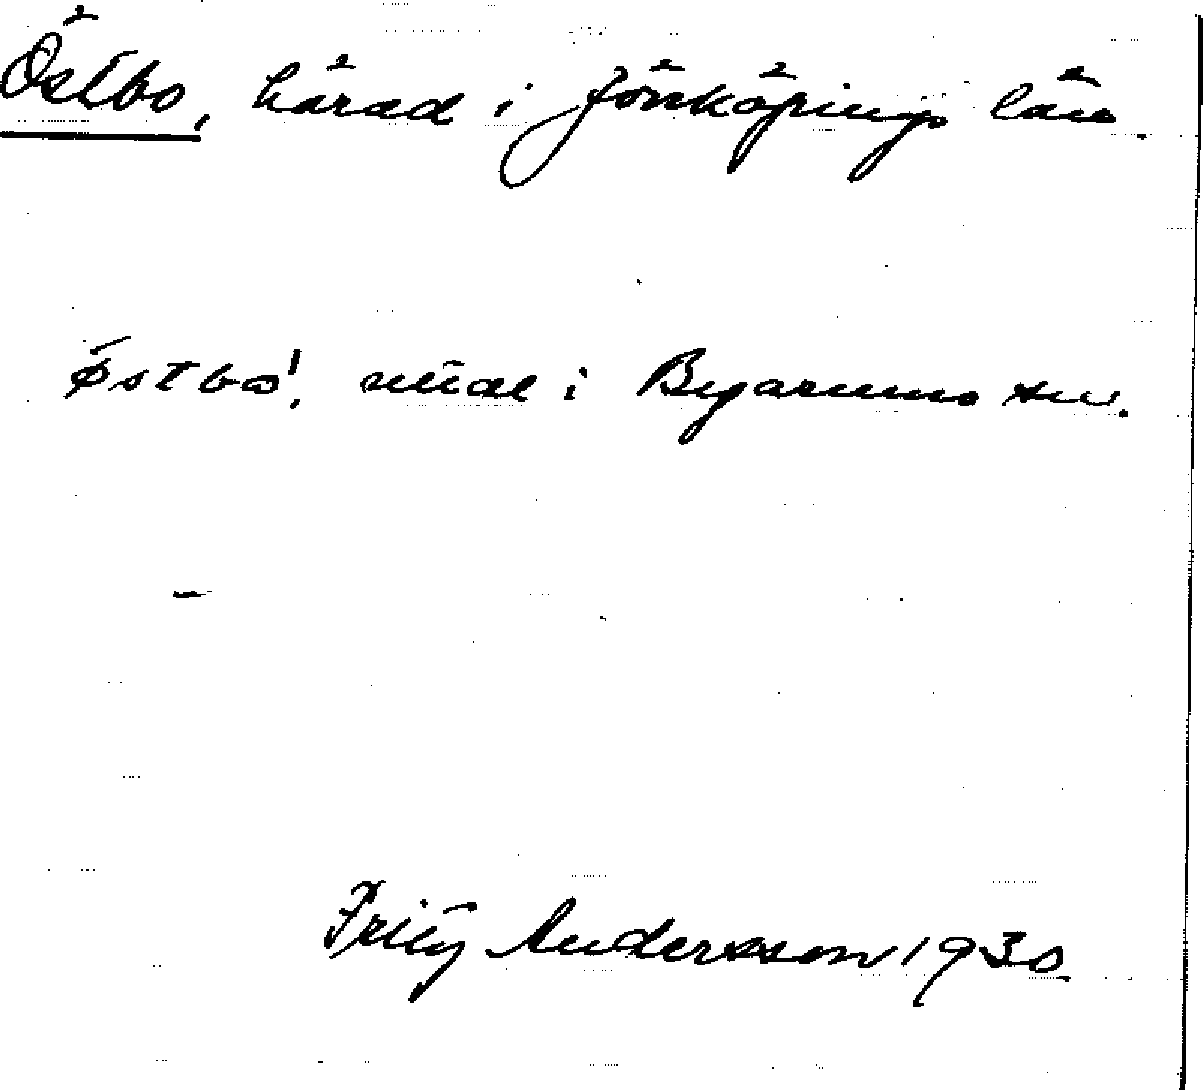 Östbo, härad i Jönköpings län.
østbo', uttal i Byarums sn.
Fritz Andersson 1930